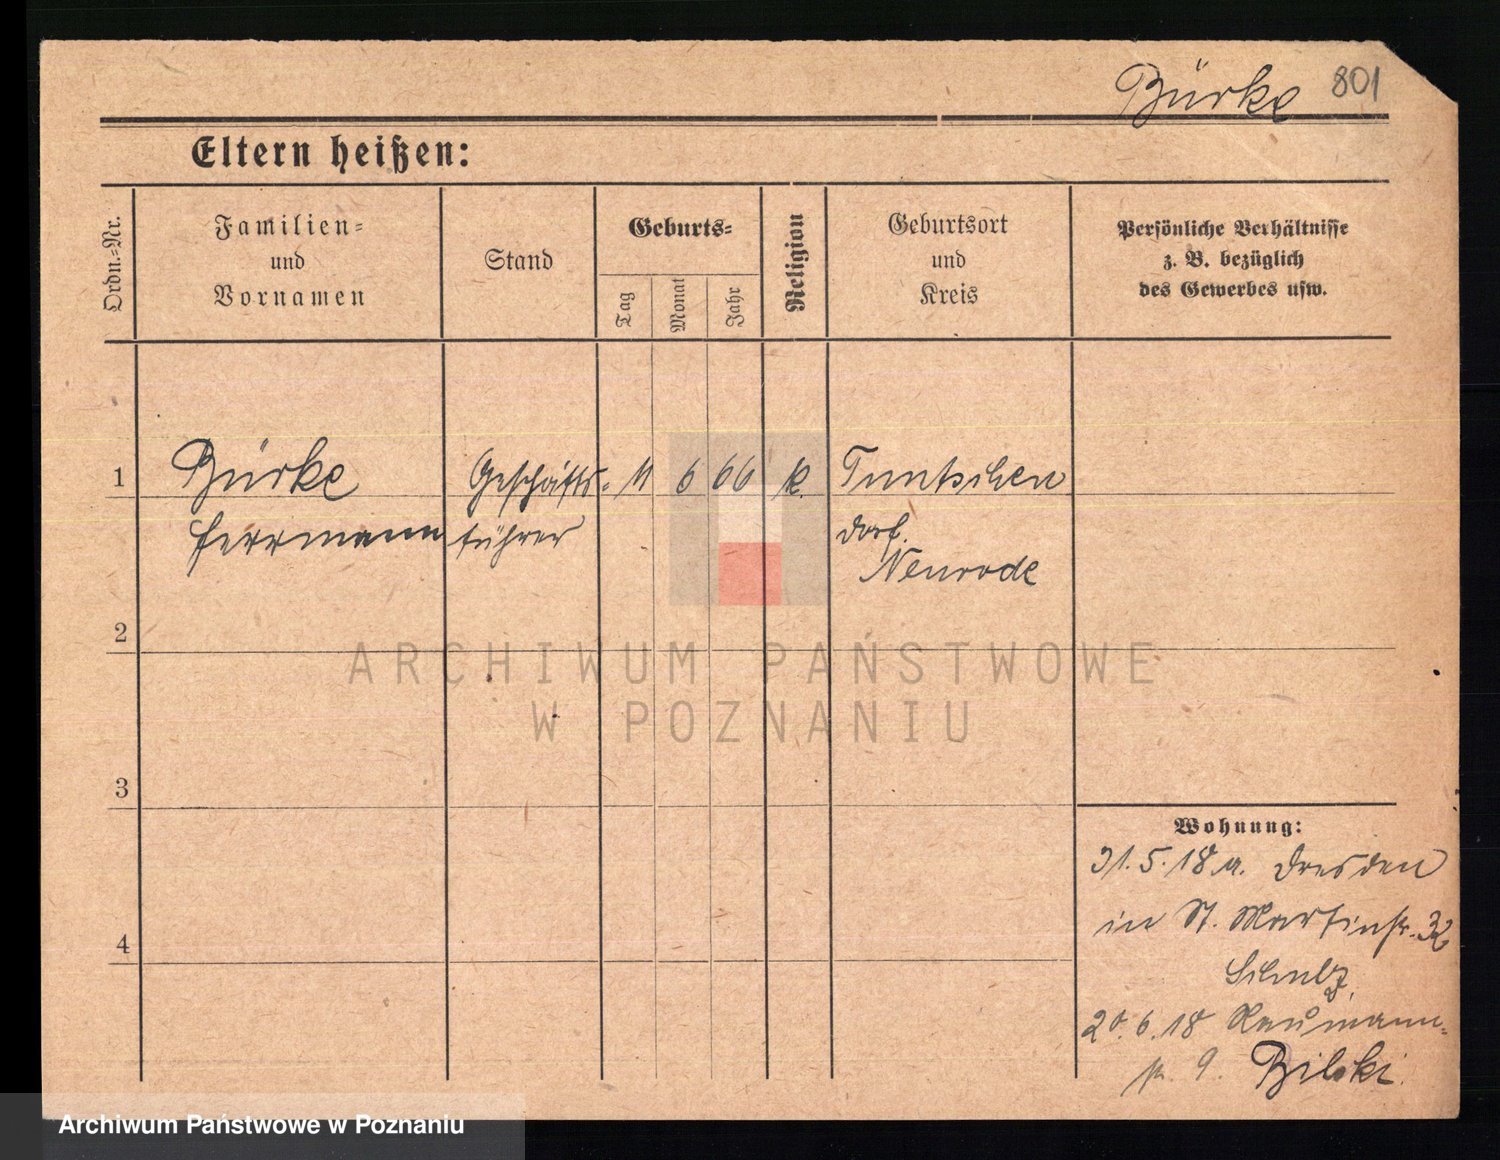 Bürke 801
Eltern heißen:
Ordn.=Nr.
Familien=
und
Vornamen
Stand
Geburts=
Tag
Monat
Jahr
Religion
Geburtsort
und
Kreis
Persönliche Verhältnisse
z. B. bezüglich
des Gewerbes usw.
1 Bürke Geschäfts= 11 6 66 k. Tuntschen
Herrmann führer dorf.
Neurode
2
3
4
Wohnung:
31.5.18 a. Dresden
in St. Martinstr. 32
Schulz,
20.6.18 Naumann=
str. 9. Bilski.
ARCHIWUM PAŃSTWOWE
W POZNANIU
Archiwum Państwowe w Poznaniu